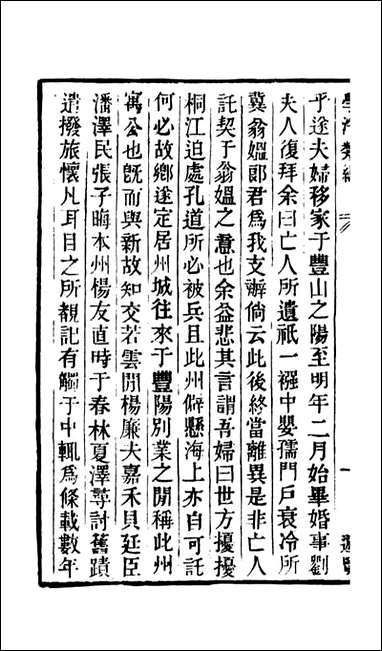 學海類編
乎途夫婦移家于豐山之陽至明年二月始畢婚事劉
夫人復拜余曰亡人所遺祇一襁中嬰孺門戶衰冷所
冀翁媼郎君爲我支辦倘云此後終當離異是非亡人
託契于翁媼之意也余益悲其言謂吾婦曰世方擾擾
桐江迫處孔道所必被兵且此州僻懸海上亦自可託
何必故鄉遂定居州城往來于豐陽別業之閒稱此州
寓公也旣而與新故知交若雲閒楊廉夫嘉禾貝廷臣
潘澤民張子晦本州楊友直時于春林夏澤蕁討舊蹟
遣撥旅懷凡耳目之所覩記有觸于中輒爲條載數年